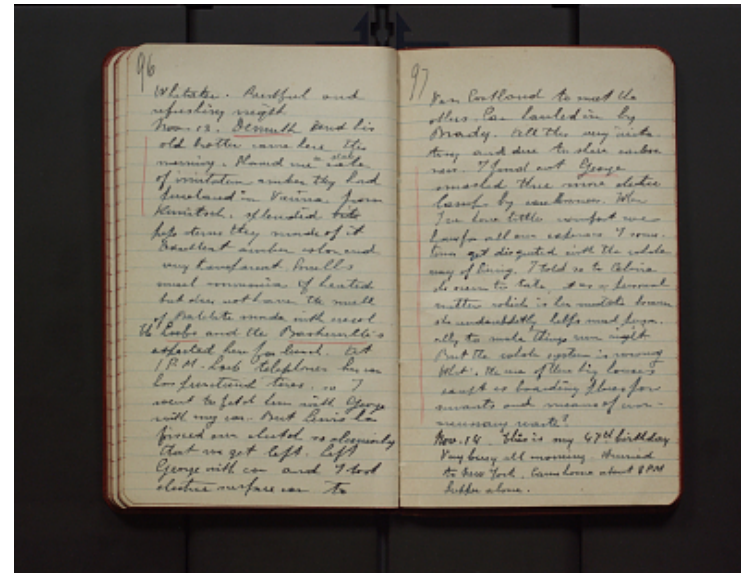 96
Whitaker. Restful and
refreshing night
Nov. 13. Demuth and his
old brother came here this
morning. Showed me a slab
of imitation amber they had
purchased in Vienna from
splendid bits
pipe stems they made of it
Excellent amber color and
very transparent. Smells
of heated
but does not have the smell
of Bakelite made with cresol
The Loebs and the Baskervilles
expected here for lunch. At
1 P.M. Loeb telephones he
has punctured tires, so I
went to fetch him with George
with my car. But Lewis has
our clutch so
that we got left. left
George with car and I took
electric surface car to
97
Van Cortland to meet the
others. Car hauled in by
Brady. All this very irrita
ting and due to sheer careless
ness. I find out George
smashed three more electric
lamps by carelessness. When
I see how little comfort we
have for all our expenses I some
times get disgusted with the whole
way of living. I told so to Celine
it as a personal
matter which is her mistake because
she undoubtedly helps
ally to make things run right
But the whole system is wrong
What is the use of these big houses
except as boarding places for
servants and means of un-
necessary waste?
Nov. 14 This is my 47th birthday
Very busy all morning. Hurried
to New York. Came home about 8 PM
Supper alone.